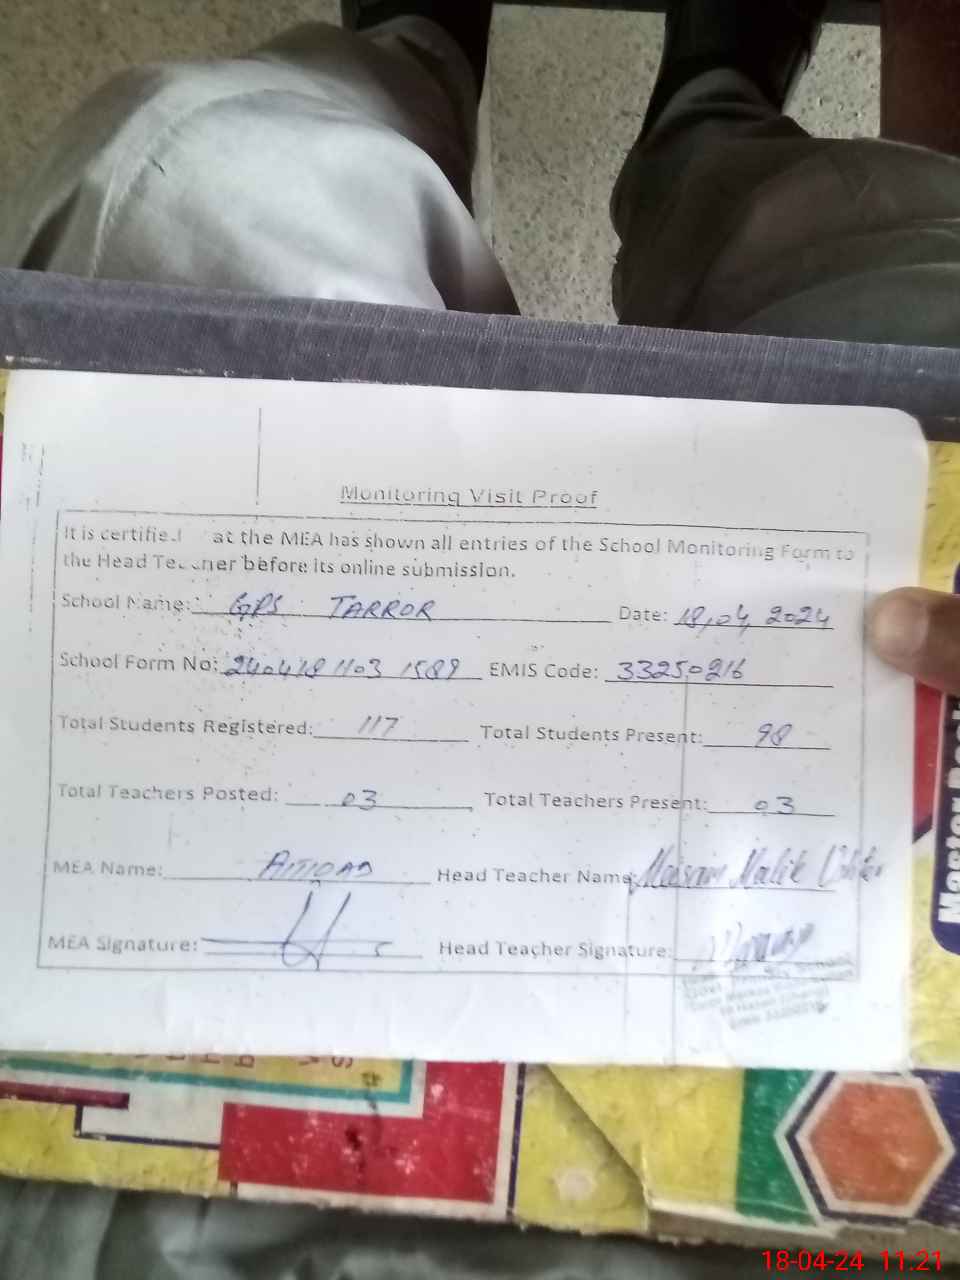 Monitoring Visit Proof
It is certified at the MEA has shown all entries of the School Monitoring Form to
the Head Teacher before its online submission.
School Name: GPS TARROR Date: 18,04, 2024
School Form No: 240418 1103 1589 EMIS Code: 33250216
Total Students Registered: 117 Total Students Present: 98
Total Teachers Posted: 03 Total Teachers Present: 03
MEA Name: Head Teacher Name: Malik
MEA Signature: Head Teacher Signature:
Master
18-04-24 11:21